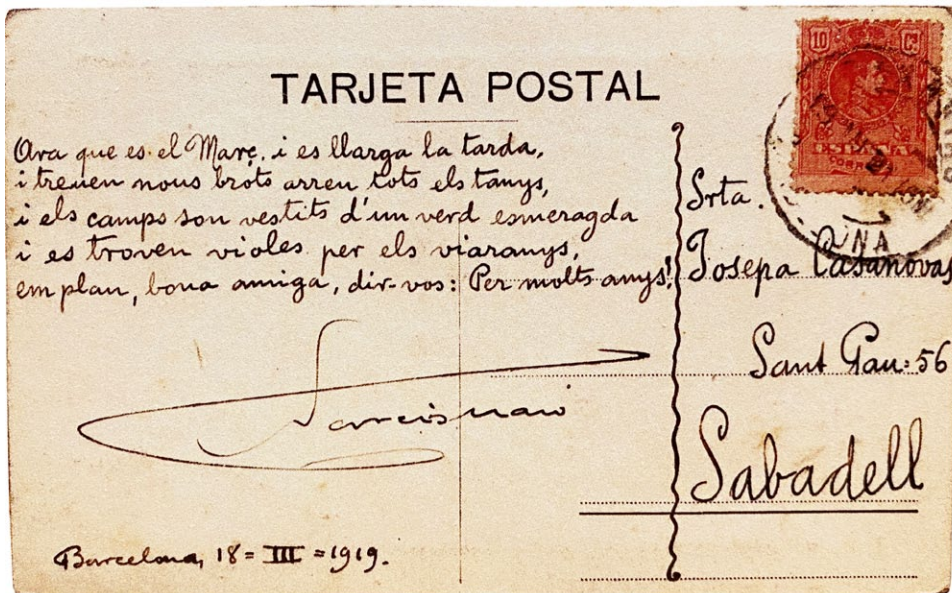 TARJETA POSTAL
10 Cs
ESPAÑA
CORREOS
Ara que es el Març, i es llarga la tarda,
i treuen nous brots arreu tots els tanys,
i els camps son vestits d'un verd esmeragda
i es troven violes per els viaranys,
em plau, bona amiga, dir-vos: Per molts anys!
Barcelona, 18 = III = 1919.
Srta.
Josepa Casanovas
Sant Pau: 56
Sabadell